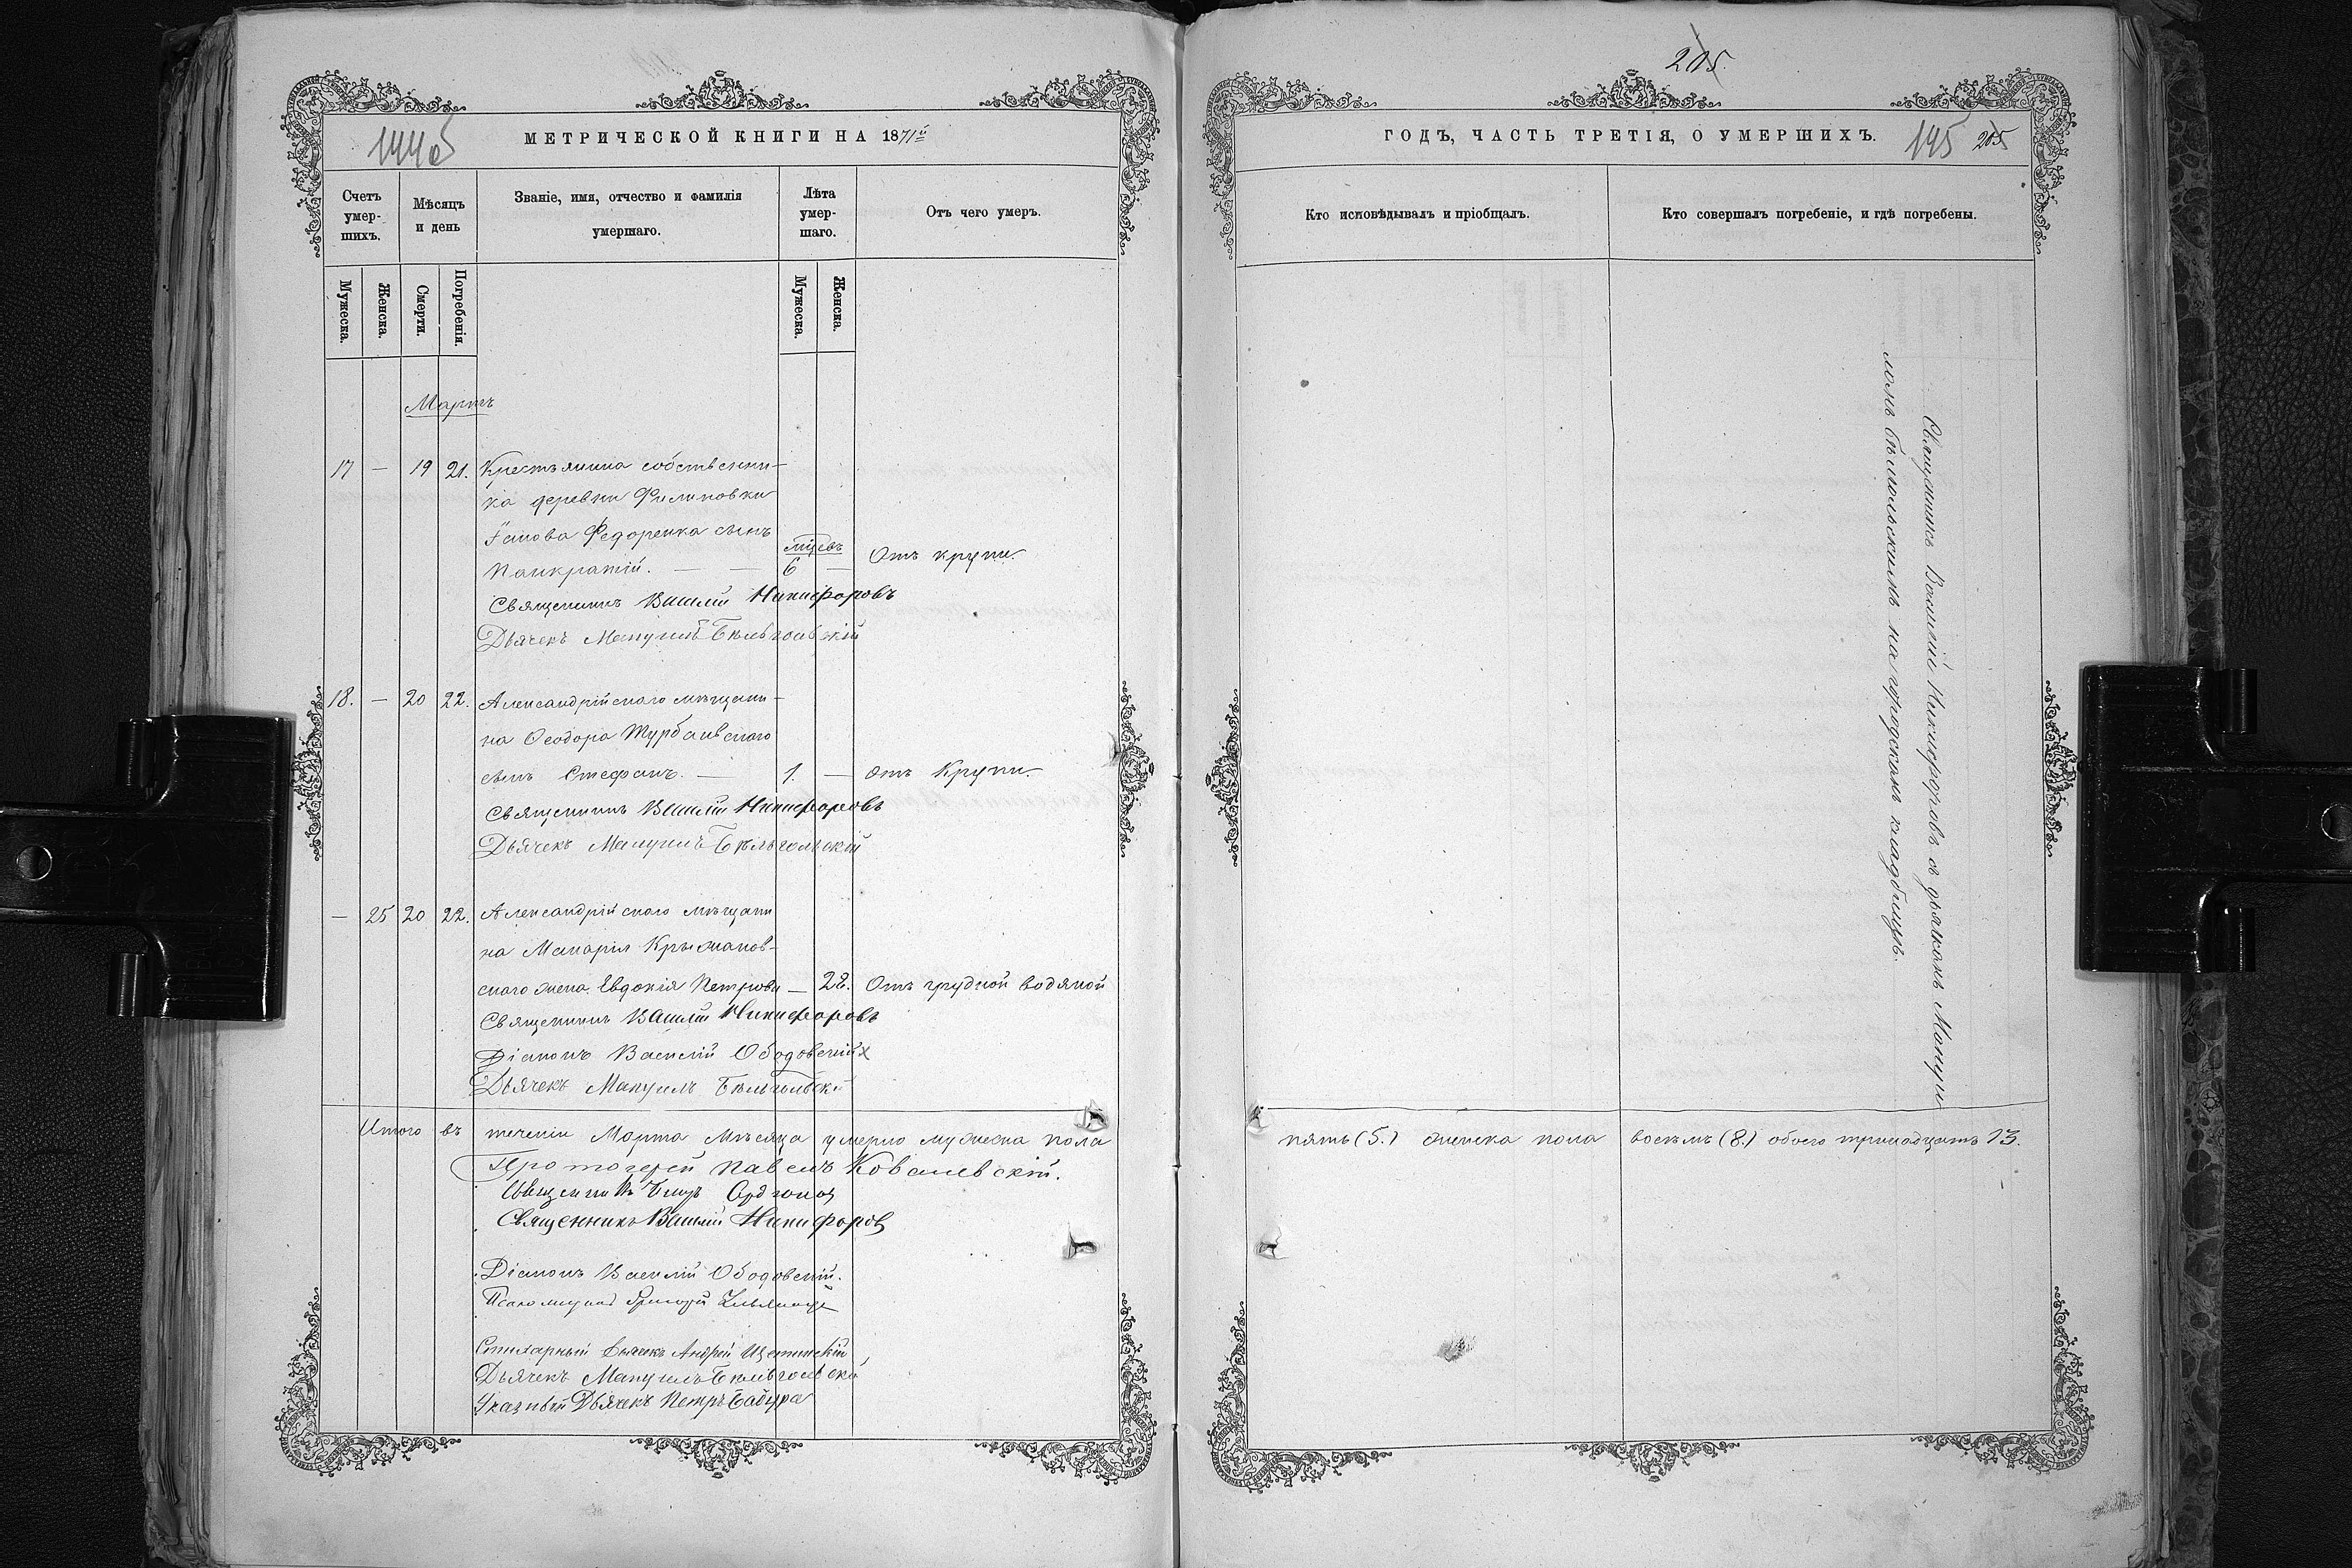 205.
МЕТРИЧЕСКОЙ КНИГИ НА 1871й
ГОДЪ, ЧАСТЬ ТРЕТІЯ, О УМЕРШИХЪ.
195 205
Счетъ умер-шихъ.
Мѣсяцъ и день
Званіе, имя, отчество и фамилія умершаго.
Лѣта умер-шаго.
Отъ чего умеръ.
Кто исповѣдывалъ и пріобщалъ.
Кто совершалъ погребеніе, и гдѣ погребены.
Мужеска. Женска. Смерти. Погребенія. Мужеска. Женска.
Мартъ
17 — 19 21. Крестьянина собственни-
ка деревни Филиповки
Федоренка сынъ
Панкратій. — — мцевъ 6 — Отъ крупи.
Священникъ Василій Никифоровъ
Дьячекъ Мануилъ
18. — 20 22. Александрійскаго мѣщани-
на Ѳеодора Турбаевскаго
сынъ Стефанъ. — 1. — отъ Крупи.
Священникъ Василій Никифоровъ
Дьячекъ Мануилъ
— 25 20 22. Александрійскаго мѣщани
на Макарія Крыжанов-
скаго жена Евдокія Петрова — 28. Отъ грудной водяной
Священникъ Василій Никифоровъ
Діаконъ Василій Ободовскій
Дьячекъ Мануилъ
Священникъ Василій Никифоровъ съ дьячкомъ Мануи
ломъ на городскомъ кладбищѣ.
Итого въ теченіи Марта мѣсяца умерло мужеска пола пять (5.) женска пола восемь (8.) обоего тринадцать 13.
Протоіерей Павелъ Ковалевскій.
Священникъ
Священникъ Василій Никифоровъ
Діаконъ Василій Ободовскій.
Григорій
Дьячекъ Андрей Щетинскій
Дьячекъ Мануилъ
Указный Дьячекъ Петръ Бабура